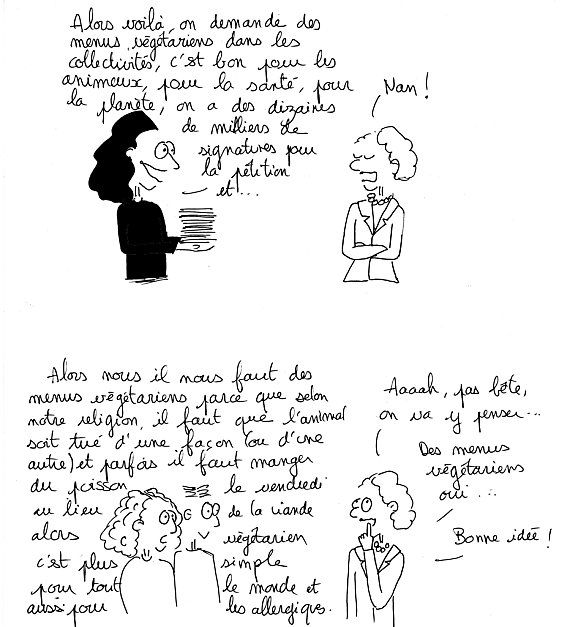 Alors voilà, on demande des
menus végétariens dans les
collectivités, c'est bon pour les
animaux, pour la santé, pour
la planète, on a des dizaines
de milliers de
signatures pour
la pétition
et...
Nan !
Alors nous il nous faut des
menus végétariens parce que selon
notre religion, il faut que l'animal
soit tué d'une façon (ou d'une
autre) et parfois il faut manger
du poisson le vendredi
au lieu de la viande
alors végétarien
c'est plus simple
pour tout le monde et
aussi pour les allergiques.
Aaaah, pas bête,
on va y penser...
Des menus
végétariens
oui...
Bonne idée !